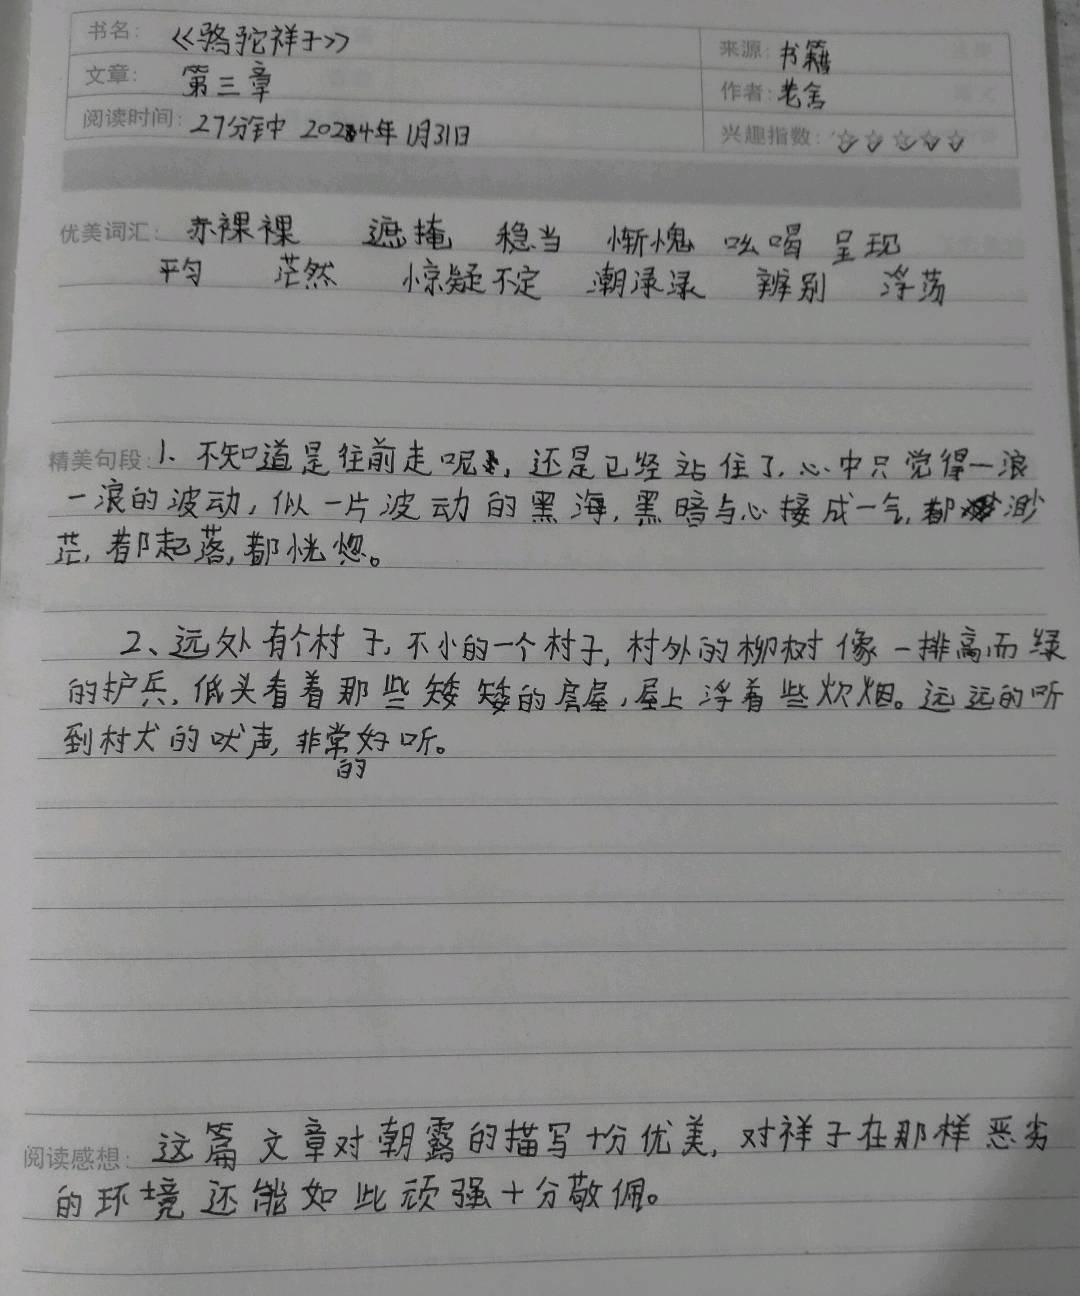 书名: 《骆驼祥子》 来源: 书籍
文章: 第三章 作者: 老舍
阅读时间: 27分钟 2024年1月31日 兴趣指数: ☆☆☆☆☆
优美词汇: 赤裸裸 遮掩 稳当 惭愧 吆喝 呈现
平匀 茫然 惊疑不定 潮渌渌 辨别 浮荡
精美句段: 1、不知道是往前走呢, 还是已经站住了, 心中只觉得一浪
一浪的波动, 似一片波动的黑海, 黑暗与心接成一气, 都渺
茫, 都起落, 都恍惚。
2、远处有个村子, 不小的一个村子, 村外的柳树像一排高而绿
的护兵, 低头看着那些矮矮的房屋, 屋上浮着些炊烟。远远的听
到村犬的吠声, 非常的好听。
阅读感想: 这篇文章对朝露的描写十分优美, 对祥子在那样恶劣
的环境还能如此顽强十分敬佩。